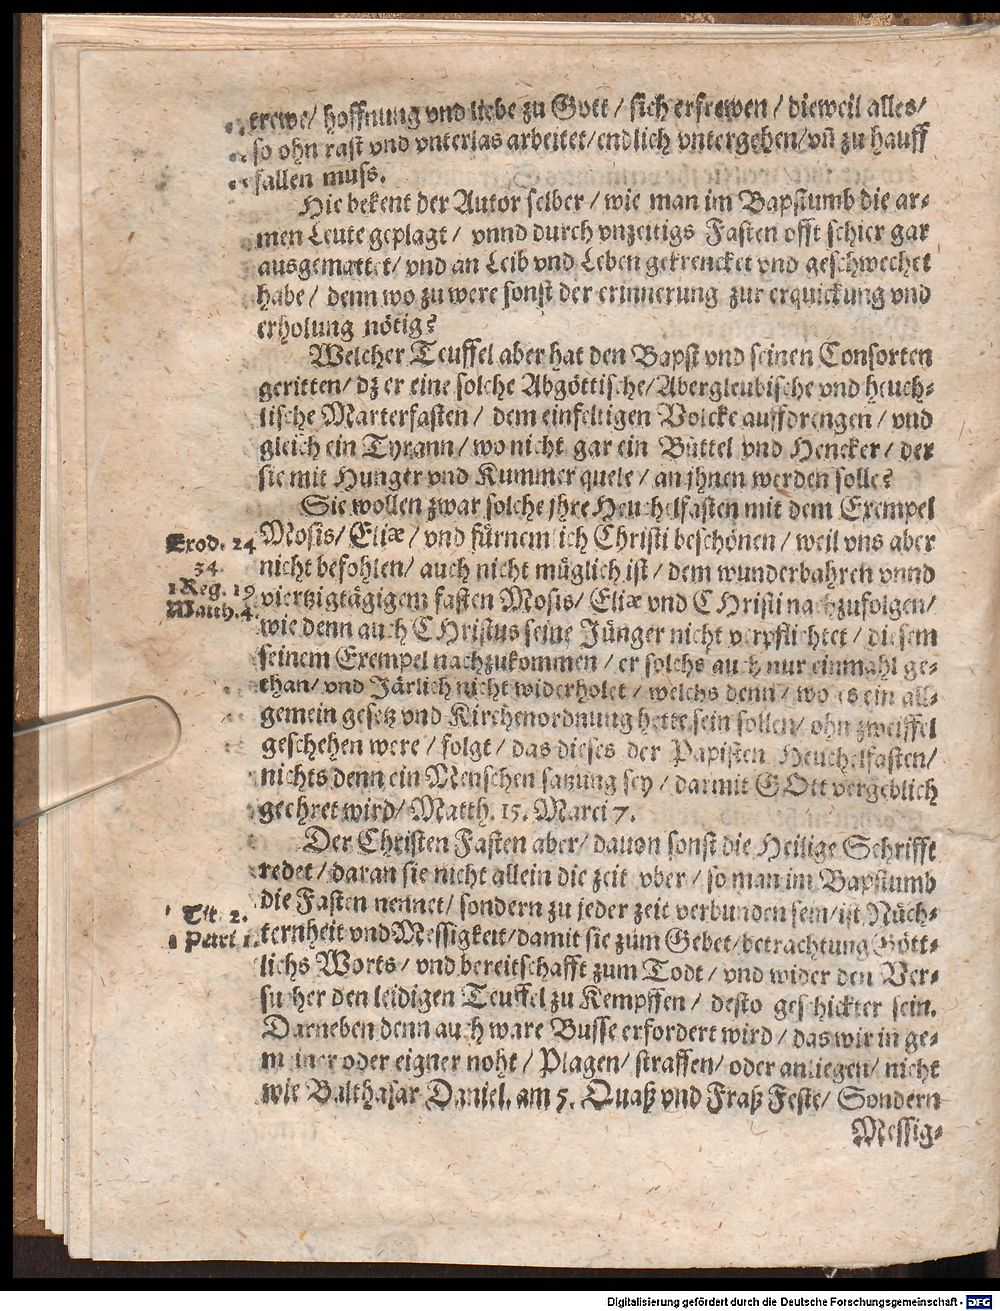 trewe/ hoffnung vnd liebe zu Gott / sich erfrewen / dieweil alles/
so ohn rast vnd vnterlas arbeitet/endlich vntergehen/vñ zu hauff
fallen muss.
Hie bekent der Autor selber / wie man im Bapstumb die ar⸗
men Leute geplagt / vnnd durch vnzeitigs Fasten offt schier gar
ausgemattet/ vnd an Leib vnd Leben gekrencket vnd geschwechet
habe / denn wo zu were sonst der erinnerung zur erquickung vnd
erholung nötig?
Welcher Teuffel aber hat den Bapst vnd seinen Consorten
geritten/ dz er eine solche Abgöttische/Abergleubische vnd heuch⸗
lische Marterfasten / dem einfeltigen Volcke auffdrengen / vnd
gleich ein Tyrann/ wo nicht gar ein Büttel vnd Hencker / der
sie mit Hunger vnd Kummer quele / an jhnen werden solle?
Sie wollen zwar solche jhre Heuchelfasten mit dem Exempel
Exod. 24
34
1 Reg. 19
Matth. 4.
Mosis/ Eliæ / vnd fürnemlich Christi beschönen / weil vns aber
nicht befohlen/ auch nicht müglich ist / dem wunderbahren vnnd
viertzigtägigem fasten Mosis/ Eliæ vnd CHristi nachzufolgen/
wie denn auch CHristus seine Jünger nicht verpflichtet / diesem
seinem Exempel nachzukommen / er solchs auch nur einmahl ge⸗
than/ vnd Järlich nicht widerholet / welchs denn / wo es ein all⸗
gemein gesetz vnd Kirchenordnung hette sein sollen/ ohn zweiffel
geschehen were / folgt / das dieses der Papisten Heuchelfasten/
nichts denn ein Menschen satzung sey / darmit GOtt vergeblich
geehret wird/ Matth. 15. Marci 7.
Der Christen Fasten aber/ dauon sonst die Heilige Schrifft
redet / daran sie nicht allein die zeit vber / so man im Bapstumb
Tit. 2.
1 Petri 1.
die Fasten nennet/ sondern zu jeder zeit verbunden sein/ist Nüch⸗
ternheit vnd Messigkeit/damit sie zum Gebet/betrachtung Gött⸗
lichs Worts / vnd bereitschafft zum Todt / vnd wider den Ver⸗
sucher den leidigen Teuffel zu Kempffen / desto geschickter sein.
Darneben denn auch ware Busse erfordert wird / das wir in ge⸗
meiner oder eigner noht / Plagen/ straffen/ oder anliegen/ nicht
wie Balthasar Daniel. am 5. Quaß vnd Fraß Feste/ Sondern
Messig⸗
Digitalisierung gefördert durch die Deutsche Forschungsgemeinschaft - DFG